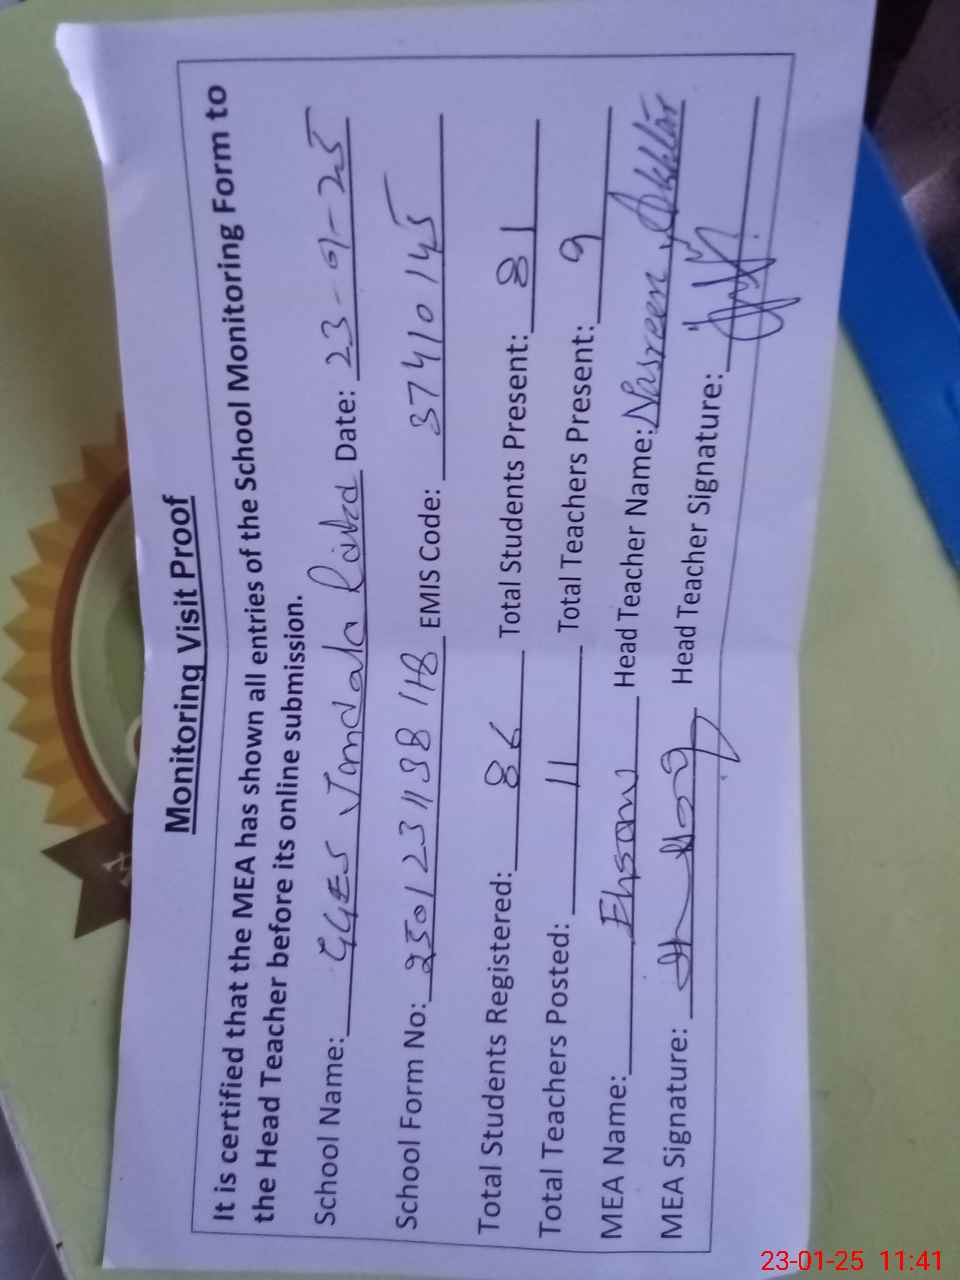 Monitoring Visit Proof
It is certified that the MEA has shown all entries of the School Monitoring Form to
the Head Teacher before its online submission.
School Name: GGES Jandala Date: 23-01-25
School Form No: 2501231138118 EMIS Code: 37410145
Total Students Registered: 86 Total Students Present: 81
Total Teachers Posted: 11 Total Teachers Present: 9
MEA Name: Ehsan Head Teacher Name: Nasreen Akhtar
MEA Signature: Head Teacher Signature:
23-01-25 11:41